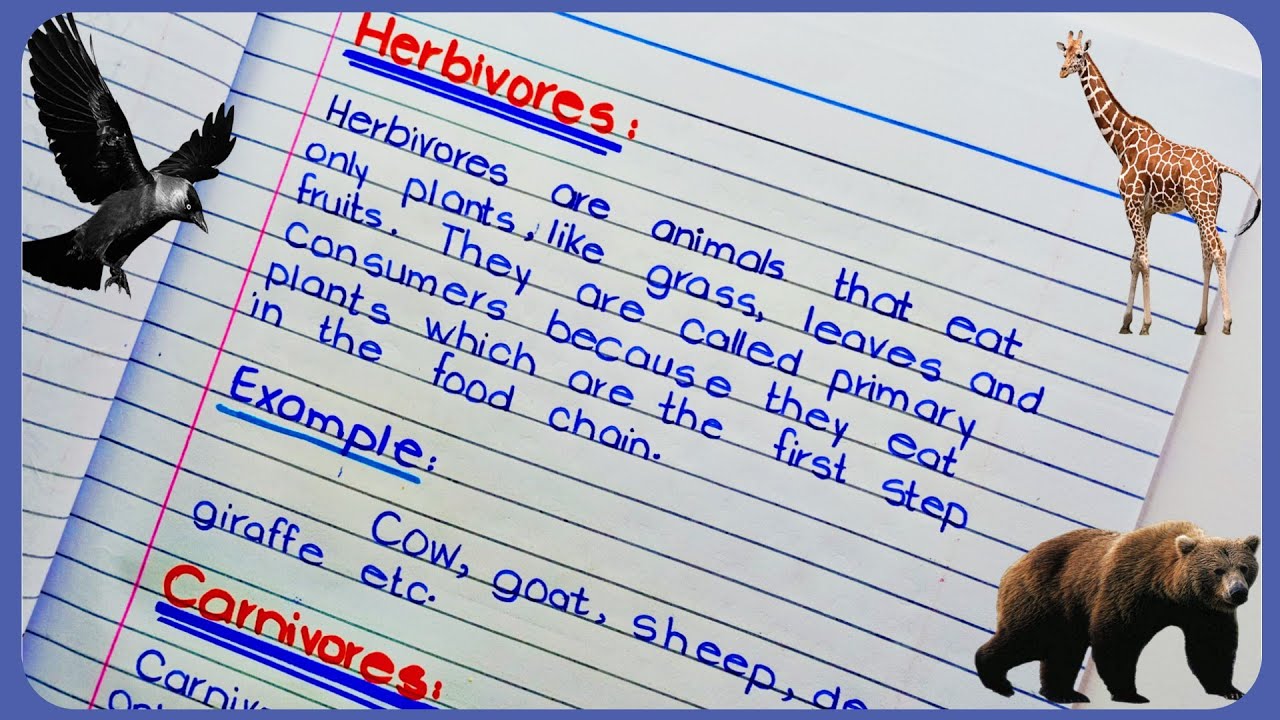 Herbivores:
Herbivores are animals that eat
only plants, like grass, leaves and
fruits. They are called primary
Consumers because they eat
plants which are the first step
in the food chain.
Example:
Cow, goat, sheep,
giraffe etc.
Carnivores: